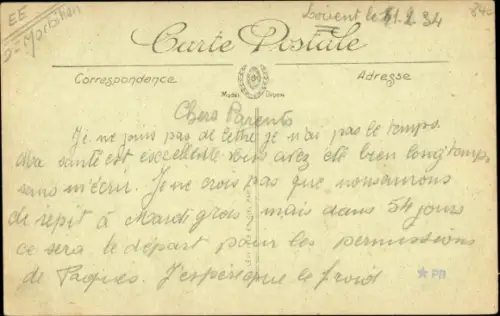 EE
D= Morbihan
Lorient le 2. 34
840
Carte Postale
Correspondance
Adresse
Modèle Déposé
Chers Parents
Je ne joins pas de lettre je n'ai pas le temps.
Ma santé est excellente vous avez été bien longtemps
sans m'écrir. Je ne crois pas que nous aurons
de répit à Mardi gros mais dans 54 jours
ce sera le départ pour les permissions
de Paques. J'espère que le froid
PR